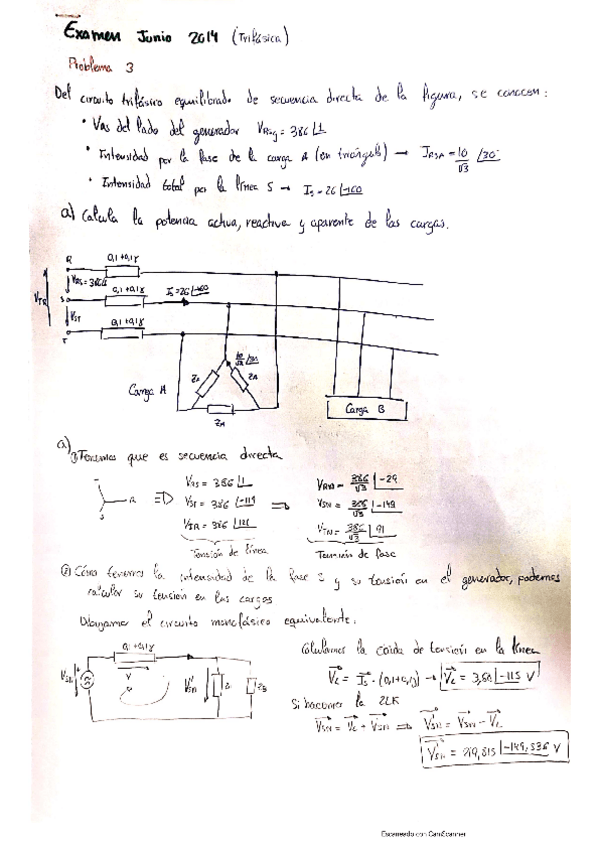 Examen Junio 2014 (Trifásica)
Problema 3
Del circuito trifásico equilibrado de secuencia directa de la figura, se conocen:
• VRS del lado del generador VRSg = 386∠1
• Intensidad por la fase de la carga A (en triángulo) → IRSA = 10/√3 ∠30°
• Intensidad total por la línea S → IS = 26∠-160
a) Calcula la potencia activa, reactiva y aparente de las cargas.
R 0,1+0,1j
VRS = 386∠1
VTR S 0,1+0,1j IS=26∠-160
VST
T 0,1+0,1j
ZA ZA
Carga A
ZA
Carga B
a)
① Tenemos que es secuencia directa
VRS = 386∠1
VST = 386∠-119
VTR = 386∠121
VRN = 386/√3 ∠-29
VSN = 386/√3 ∠-149
VTN = 386/√3 ∠91
R
S
Tensión de línea
Tensión de fase
② Cómo tenemos la intensidad de la fase S y su tensión en el generador, podemos
calcular su tensión en las cargas
Dibujamos el circuito monofásico equivalente:
0,1+0,1j
VSN
V'SN
ZB
Calculamos la caída de tensión en la línea
VL = IS · (0,1+0,1j) → VL = 3,68∠-115 V
Si hacemos la 2LK
VSN = VL + V'SN ⟹ V'SN = VSN - VL
V'SN = 219,815∠-149,536 V
Escaneado con CamScanner